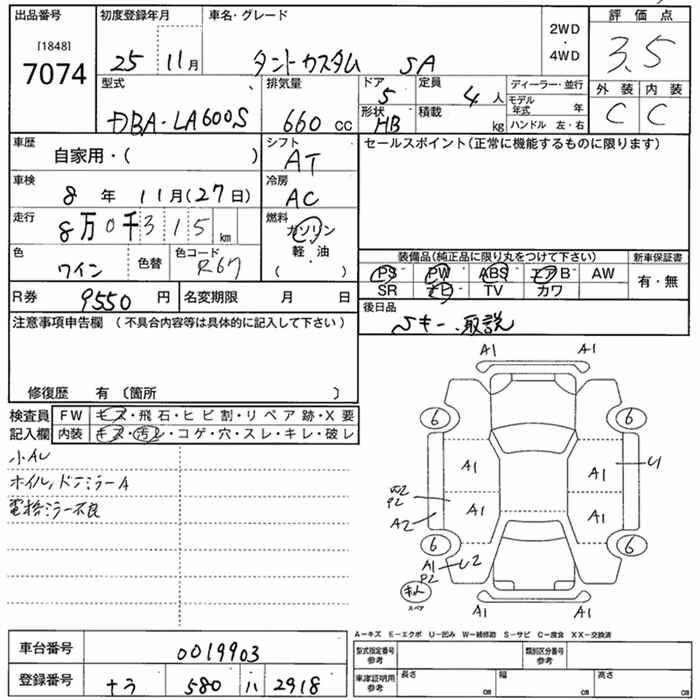 出品番号 初度登録年月 車名・グレード 2WD ・ 4WD 評価点
[1848]
7074 25 11月 タントカスタム SA 3.5
型式 排気量 ドア 定員 ディーラー・並行 外装 内装
5 4人 モデル年式 年 C C
DBA-LA600S 660 cc 形状 HB 積載 kg ハンドル 左・右
車歴 シフト セールスポイント(正常に機能するものに限ります)
自家用・( ) AT
車検 冷房
8年 11月(27日) AC
走行 燃料
8万0千315km ガソリン
軽・油
( )
色 色替 色コード 装備品(純正品に限り丸をつけて下さい) 新車保証書
ワイン R67 PS PW ABS エアB AW 有・無
SR ナビ TV カワ
R券 9550円 名変期限 月 日 後日品
Sキー、取説
注意事項申告欄 (不具合内容等は具体的に記入して下さい)
修復歴 有 〔箇所 〕
検査員 FW キズ・飛石・ヒビ割・リペア跡・X要
記入欄 内装 キズ・汚レ・コゲ・穴・スレ・キレ・破レ
ホイル,ドアミラーA
電格ミラー不良
A1 A1
6 6
A1 A1 U
W2
P2 A1 A1
A2
6 6
A1 U2
P2
スペア
A1 A1
A-キズ E-エクボ U-凹み W-補修跡 S-サビ C-腐食 XX-交換済
車台番号 0019903
型式指定番号 参考 類別区分番号 参考
登録番号 ナラ 580 ハ 2918
車庫証明用 参考 長さ cm 幅 cm 高さ cm